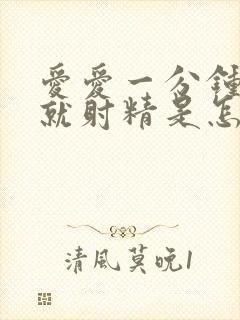 愛愛一分鍾
就射精是怎
清風莫晚1